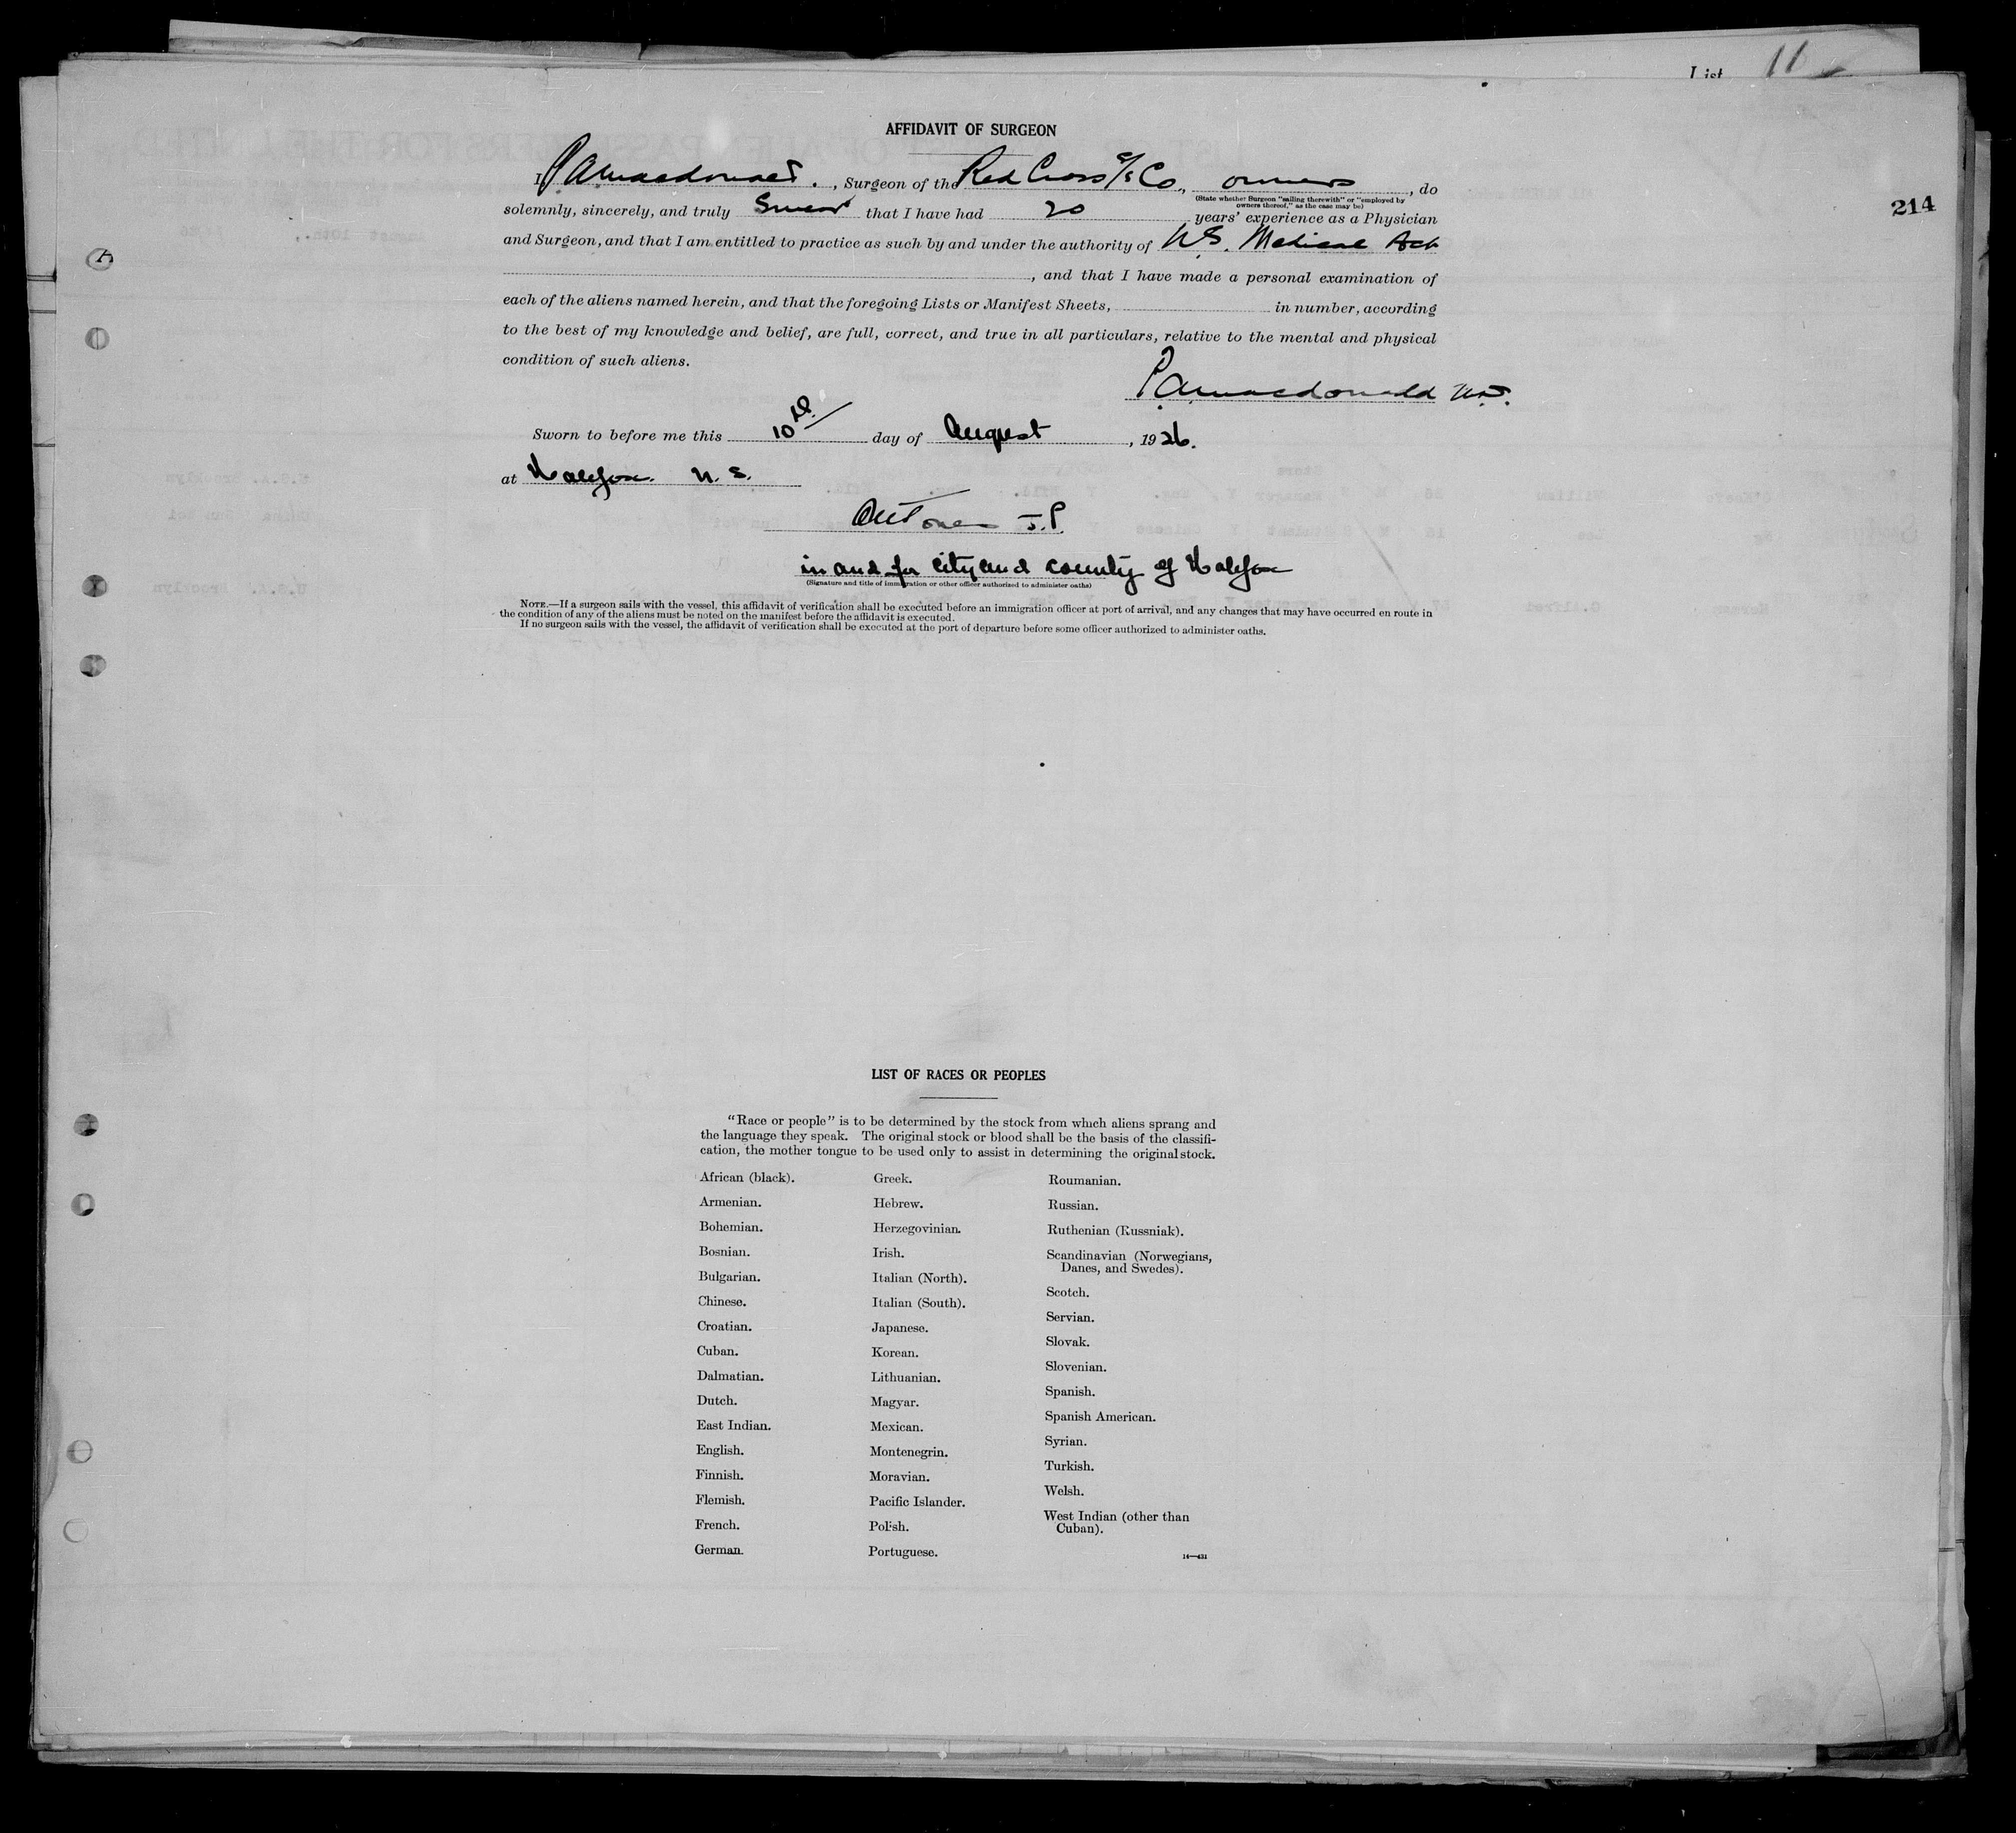 List 11
AFFIDAVIT OF SURGEON
I P.A. Macdonald., Surgeon of the Red Cross S/S Co., owners, do
(State whether Surgeon "sailing therewith" or "employed by
owners thereof," as the case may be)
214
solemnly, sincerely, and truly Swear that I have had 20 years' experience as a Physician
and Surgeon, and that I am entitled to practice as such by and under the authority of N.S. Medical Act
, and that I have made a personal examination of
each of the aliens named herein, and that the foregoing Lists or Manifest Sheets, in number, according
to the best of my knowledge and belief, are full, correct, and true in all particulars, relative to the mental and physical
condition of such aliens.
P.A. Macdonald M.D.
Sworn to before me this 10th day of August, 1926.
at Halifax. N.S.
J.P.
in and for city and county of Halifax
(Signature and title of immigration or other officer authorized to administer oaths)
NOTE.—If a surgeon sails with the vessel, this affidavit of verification shall be executed before an immigration officer at port of arrival, and any changes that may have occurred en route in
the condition of any of the aliens must be noted on the manifest before the affidavit is executed.
If no surgeon sails with the vessel, the affidavit of verification shall be executed at the port of departure before some officer authorized to administer oaths.
LIST OF RACES OR PEOPLES
"Race or people" is to be determined by the stock from which aliens sprang and
the language they speak. The original stock or blood shall be the basis of the classifi-
cation, the mother tongue to be used only to assist in determining the original stock.
African (black).
Armenian.
Bohemian.
Bosnian.
Bulgarian.
Chinese.
Croatian.
Cuban.
Dalmatian.
Dutch.
East Indian.
English.
Finnish.
Flemish.
French.
German.
Greek.
Hebrew.
Herzegovinian.
Irish.
Italian (North).
Italian (South).
Japanese.
Korean.
Lithuanian.
Magyar.
Mexican.
Montenegrin.
Moravian.
Pacific Islander.
Polish.
Portuguese.
Roumanian.
Russian.
Ruthenian (Russniak).
Scandinavian (Norwegians,
Danes, and Swedes).
Scotch.
Servian.
Slovak.
Slovenian.
Spanish.
Spanish American.
Syrian.
Turkish.
Welsh.
West Indian (other than
Cuban).
14—431